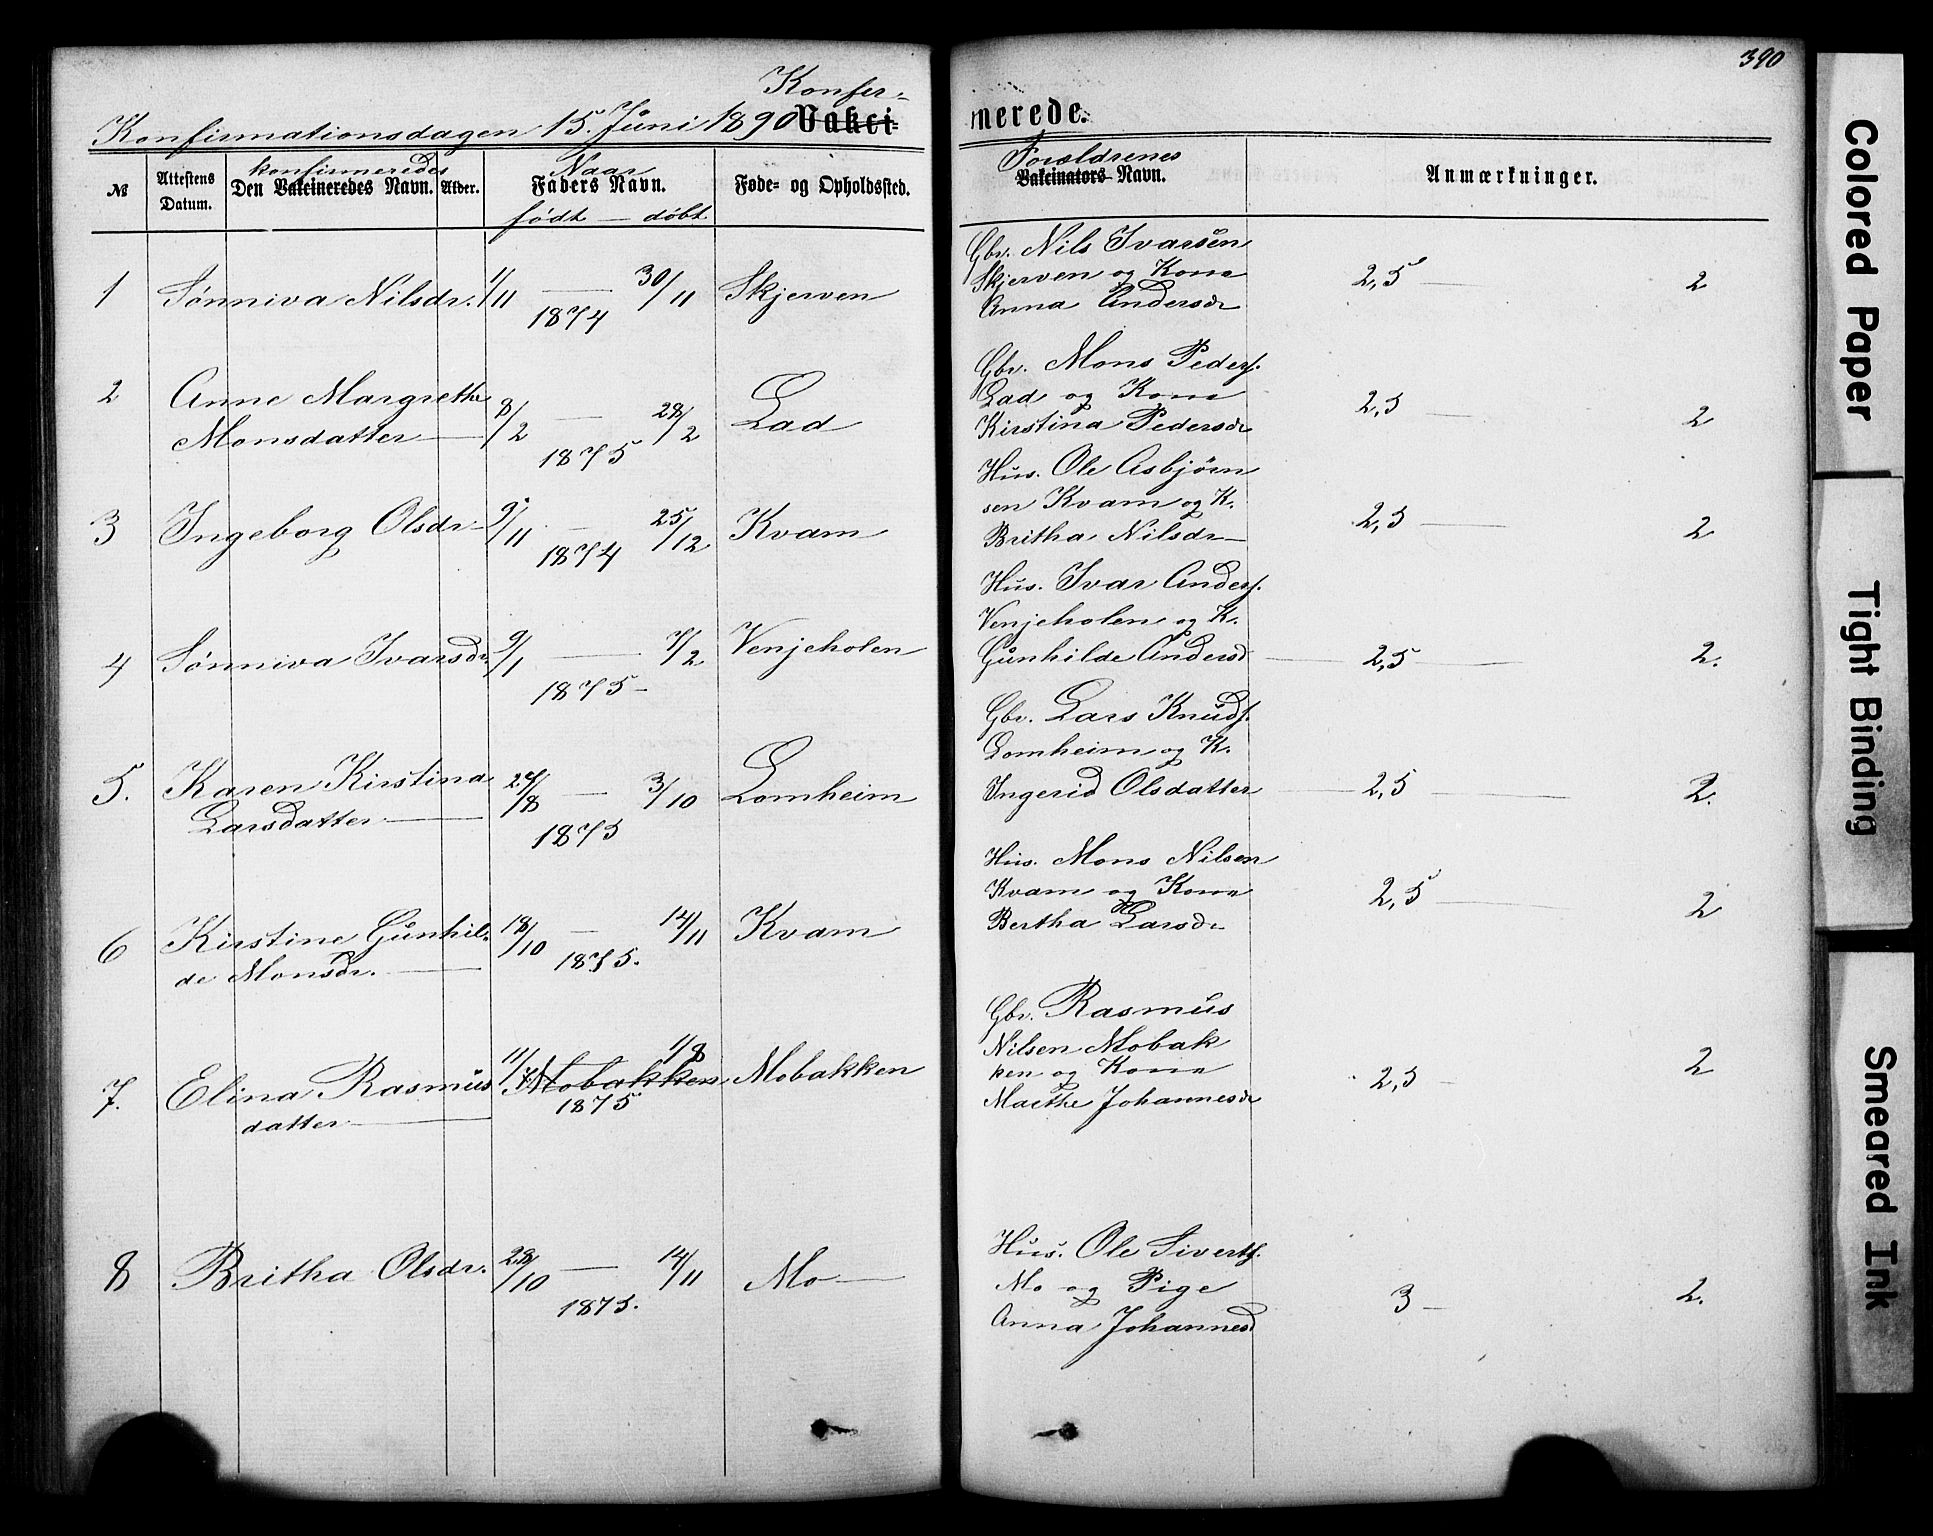 Konfer-
Konfirmationsdagen 15. Juni 1890 Vakci-
№
Attestens Datum.
konfirmeredes
Den Vakcineredes Navn.
Alder.
Naar
Faders Navn.
født — döbt
Føde- og Opholdssted.
1 Sønniva Nilsdr. 1/11 — 30/11 Skjerven
1874
2 Anne Margrethe
Monsdatter — 8/2 — 28/2 Lad
1875
3 Ingeborg Olsdr. 9/11 — 25/12 Kvam
1874
4 Sønniva Ivarsdr. 9/1 — 7/2 Venjeholen
1875 —
5. Karen Kirstina
Larsdatter — 27/8 — 3/10 Lomheim
1875
6 Kirstine Gunhil-
de Monsdr. — 18/10 — 14/11 Kvam
1875.
7. Elina Rasmus
datter — 11/7 Mobakken 1/8 Mobakken
1875
8 Britha Olsdr. 28/10 — 14/11 Mo —
1875.
390
nerede.
Forældrenes
Vakcinators Navn.
Anmærkninger.
Gbr. Nils Ivarsen
Skjerven og Kone 2,5 — 2
Anna Andersdr
Gbr. Mons Peders.
Lad og Kone 2,5 — 2
Kirstina Pedersdr
Hus. Ole Asbjörn
sen Kvam og K. 2,5 — 2
Britha Nilsdr —
Hus. Ivar Anders.
Venjeholen og K.
Gunhilde Andersd — 2,5 — 2.
Gbr. Lars Knuds.
Lomheim og K.
Ingerid Olsdatter — 2,5 — 2.
Hus. Mons Nilsen
Kvam og Kone 2,5 — 2
Bertha Larsdr
Gbr. Rasmus
Nilsen Mobak
ken og Kone 2,5 — 2
Marthe Johannesdr
Hus. Ole Siverts.
Mo og Pige 3 — 2.
Anna Johannesd
Colored Paper
Tight Binding
Smeared Ink